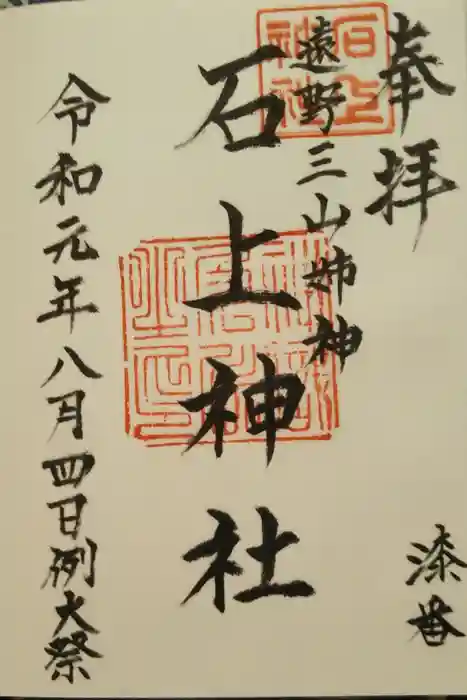 奉拝
遠野三山姉神
石上神社
令和元年八月四日例大祭
漆番
石上
神社